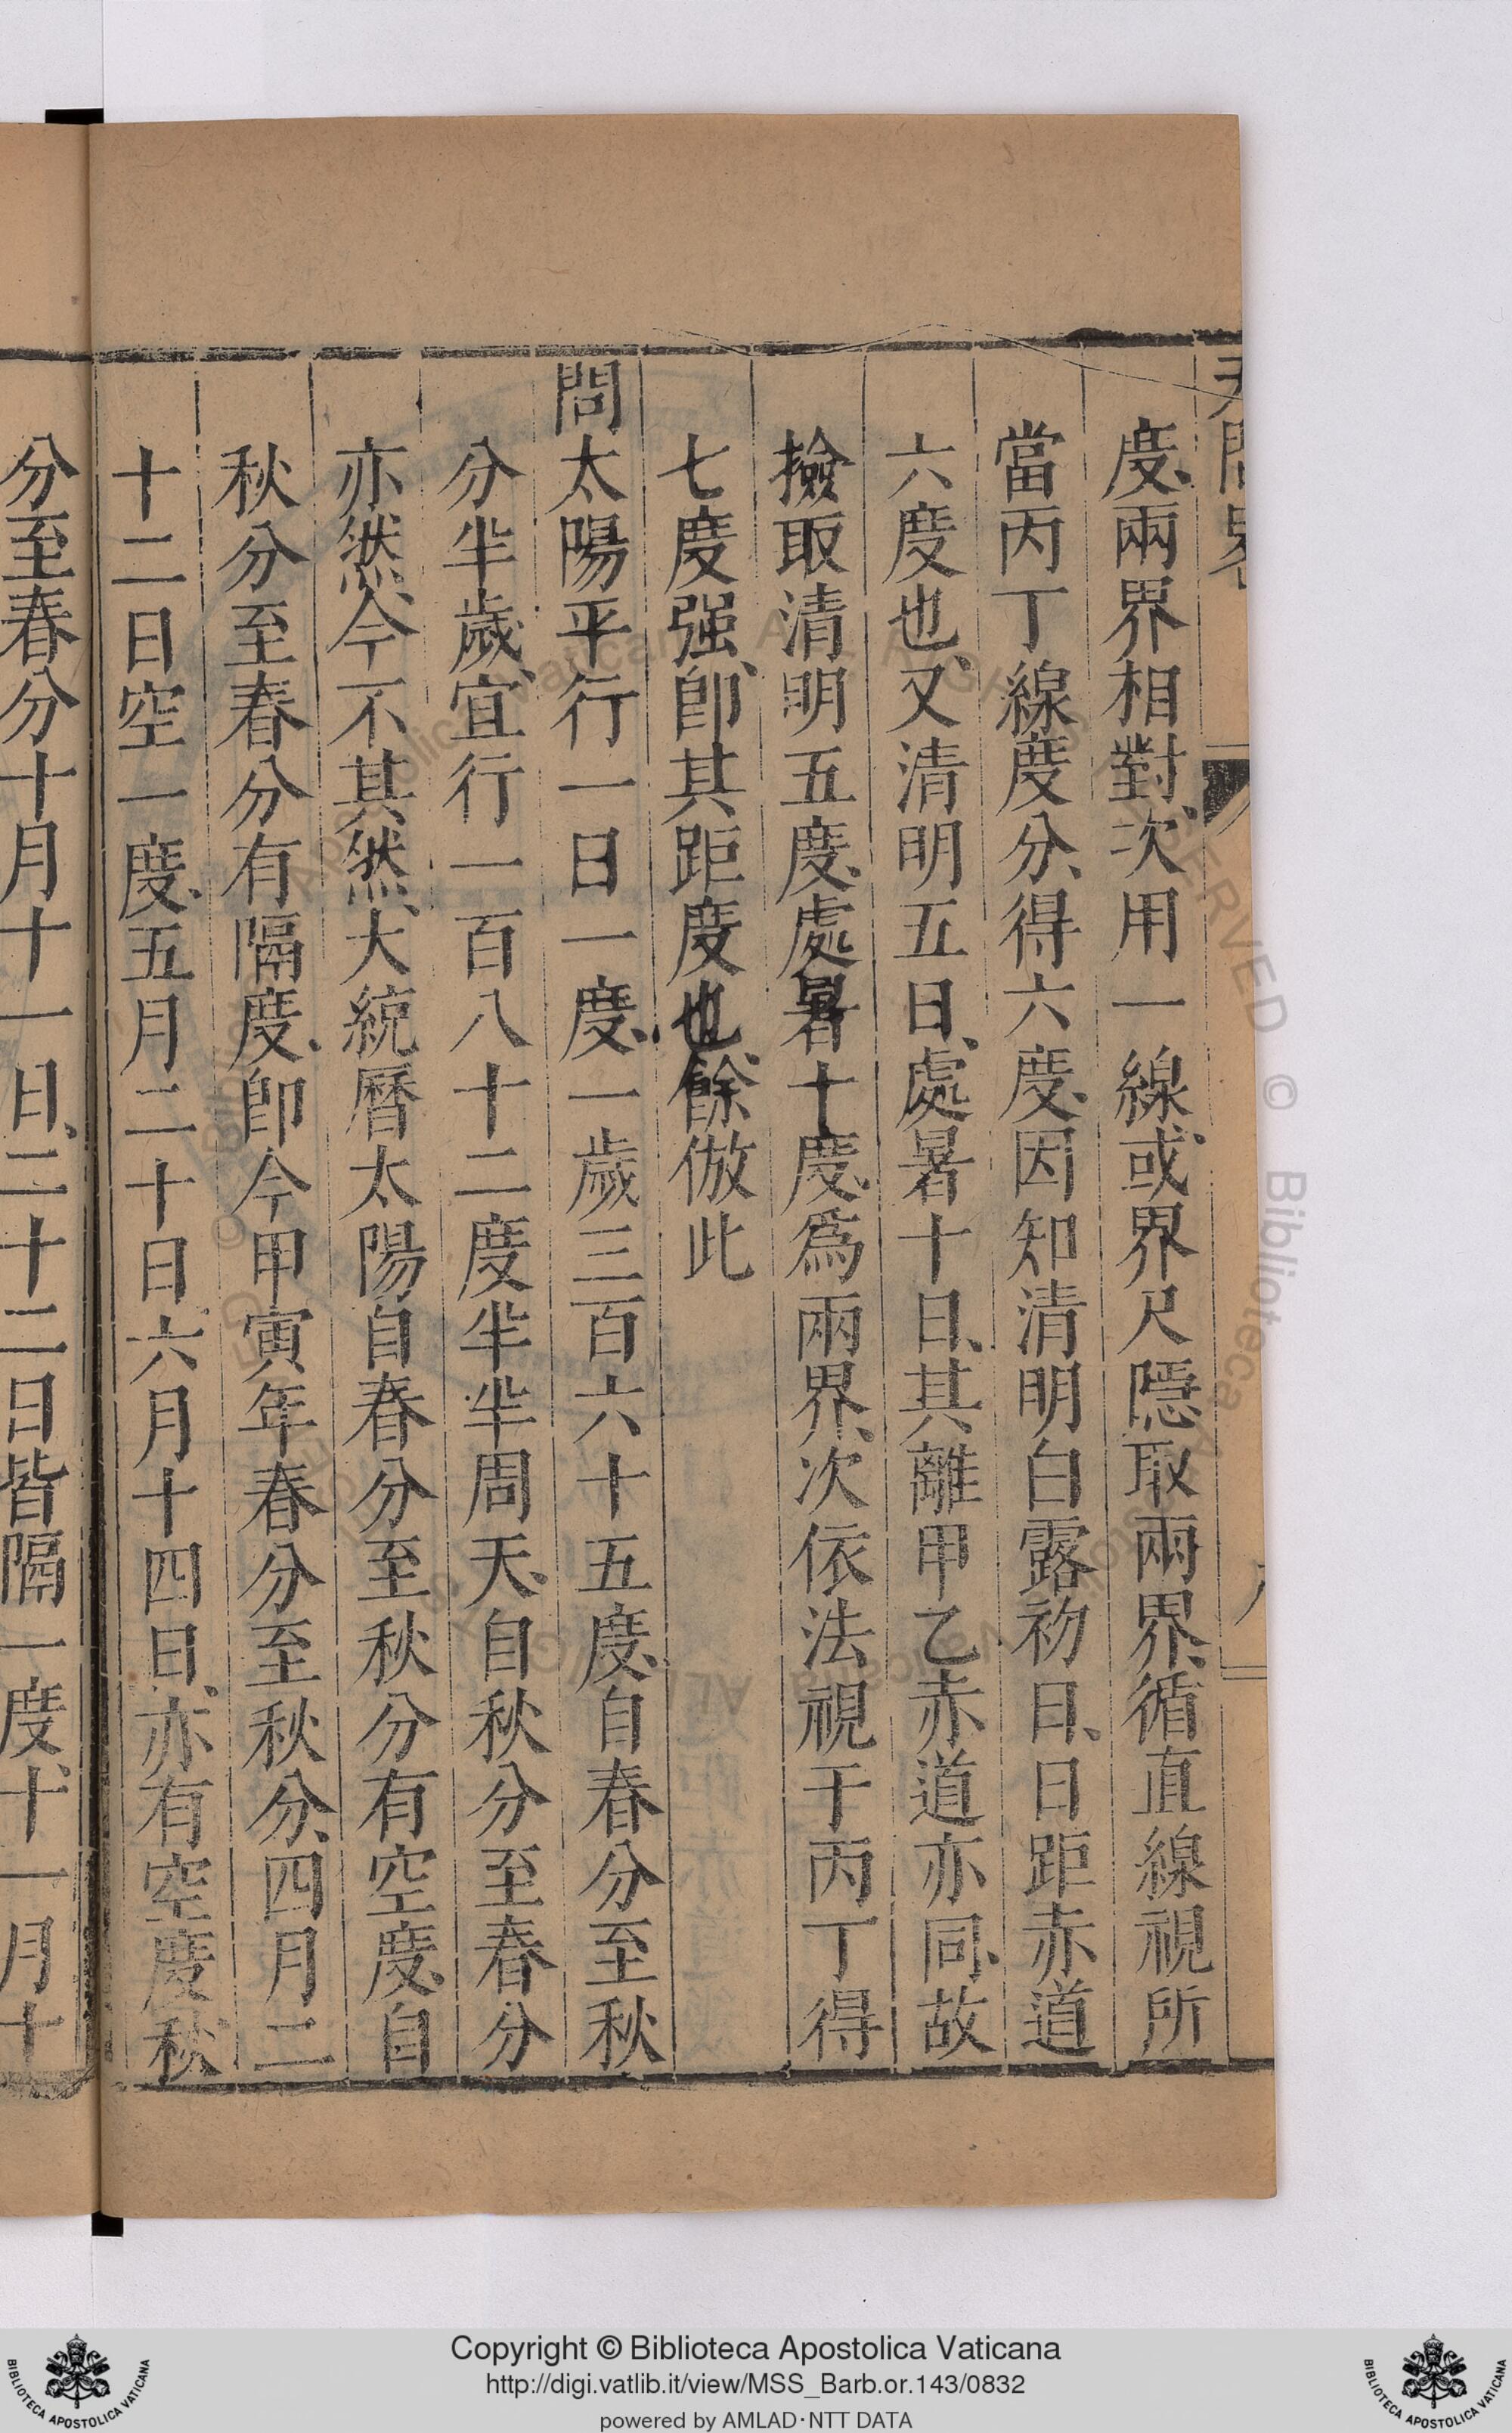 度、兩界相對、次用一線、或界尺隱取兩界、循直線視所
當丙丁線度分、得六度、因知清明白露初日、日距赤道
六度也、又清明五日、處暑十日、其離甲乙赤道亦同、故
撿取清明五度、處暑十度、爲兩界、次依法視于丙丁得
七度强、卽其距度也、餘倣此
問太陽平行一日一度、一歲三百六十五度、自春分至秋
分半歲、宜行一百八十二度半半周天、自秋分至春分
亦然、今不其然、大統曆太陽自春分至秋分有空度、自
秋分至春分有隔度、卽今甲寅年春分至秋分、四月二
十二日空一度、五月二十日、六月十四日、亦有空度、秋
分至春分十月十一日、二十二日皆隔一度、十一月十
Copyright © Biblioteca Apostolica Vaticana
http://digi.vatlib.it/view/MSS_Barb.or.143/0832
powered by AMLAD·NTT DATA
BIBLIOTECA APOSTOLICA VATICANA
BIBLIOTECA APOSTOLICA VATICANA